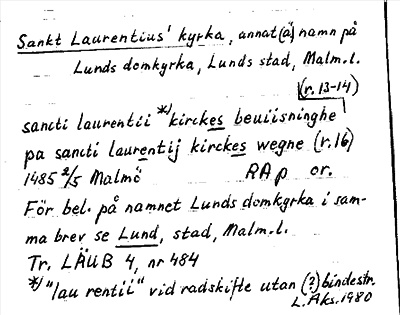 Sankt Laurentius' kyrka, annat (ä) namn på
Lunds domkyrka, Lunds stad, Malm.l.
(r. 13-14)
sancti laurentii *) kirckes beuiisninghe
pa sancti laurentij kirckes wegne (r. 16)
1485 2/5 Malmö RAp or.
För bel. på namnet Lunds domkyrka i sam-
ma brev se Lund, stad, Malm.l.
Tr. LÄUB 4, nr 484
*) "lau rentii" vid radskifte utan (?) bindestr.
L. Aks. 1980